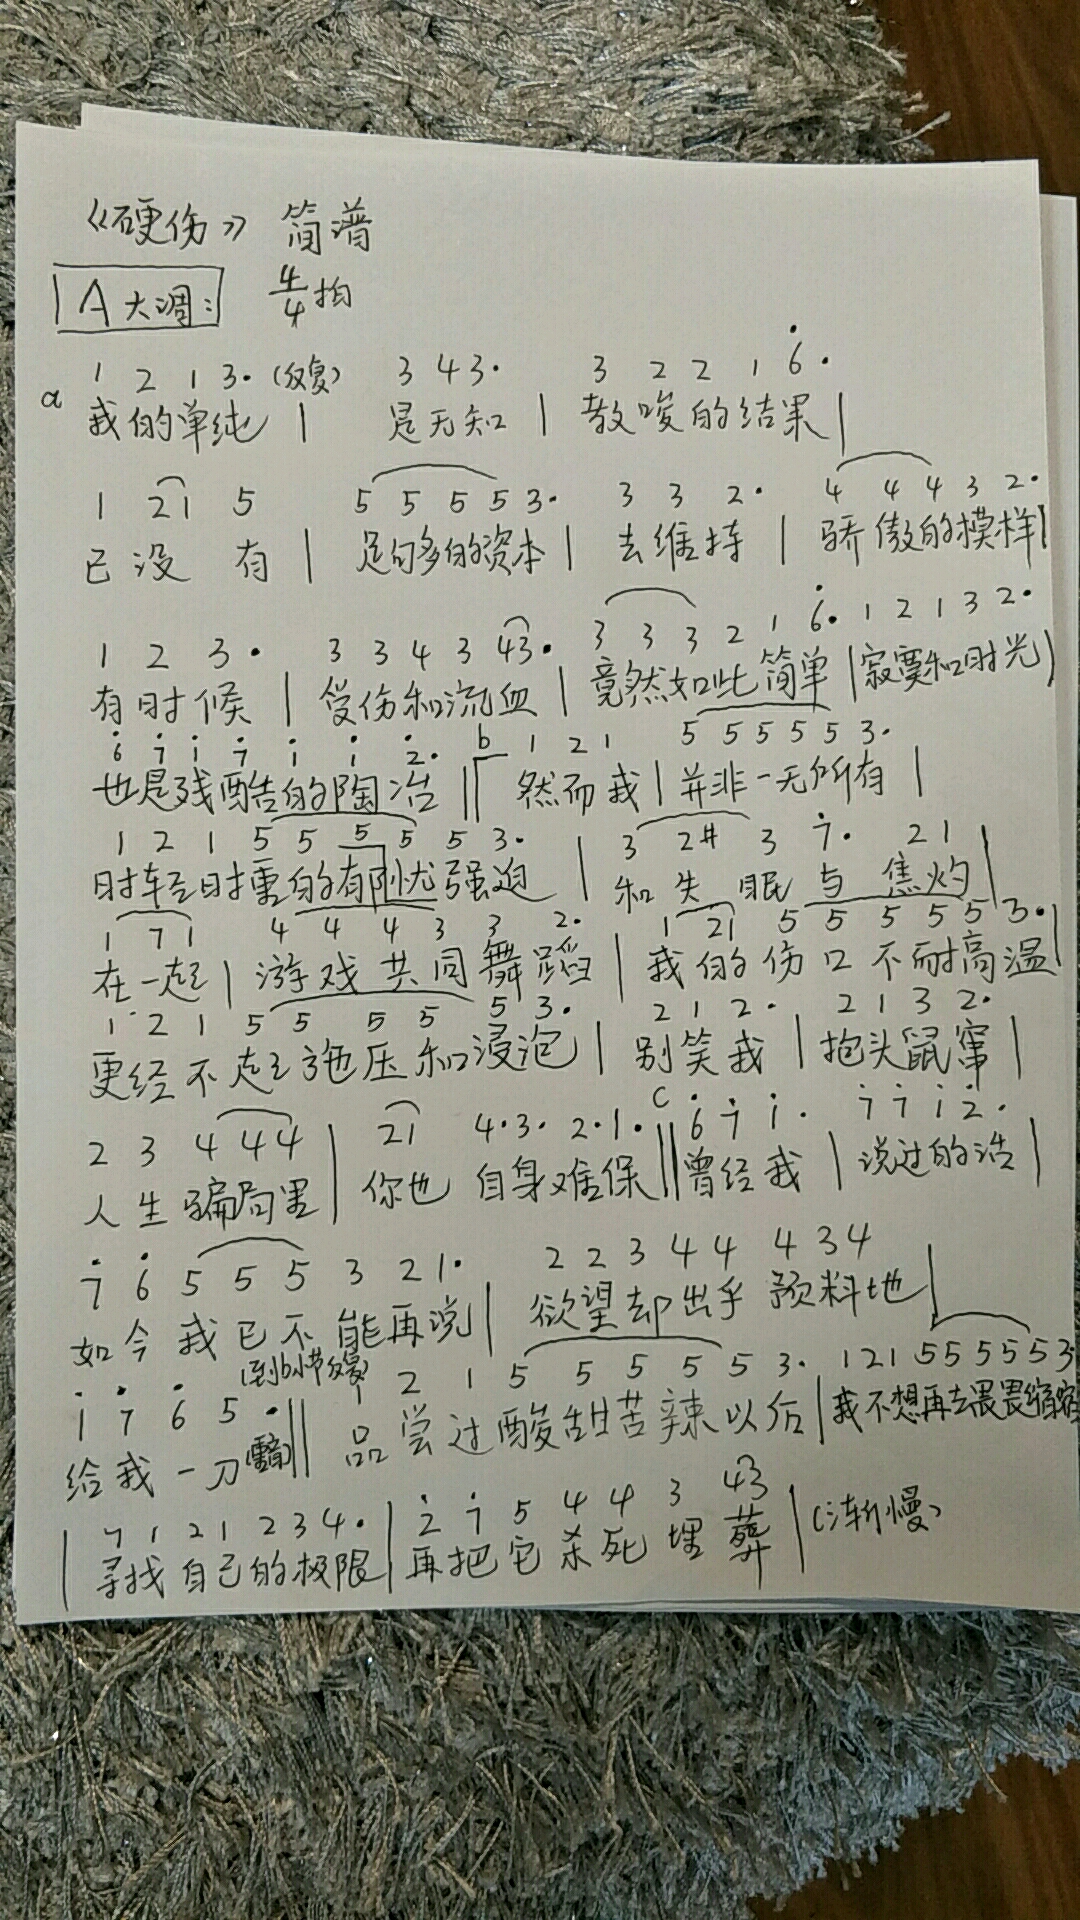 《硬伤》 简谱
A大调: 4/4拍
1 2 1 3· (反复) 3 4 3· 3 2 2 1 6̇·
a 我的单纯 | 是无知 | 教唆的结果 |
1 21 5 5 5 5 5 3· 3 3 2· 4 4 4 3 2·
已没有 | 足够多的资本 | 去维持 | 骄傲的模样 |
1 2 3· 3 3 4 3 43· 3 3 3 2 1 6̇· 1 2 1 3 2·
有时候 | 受伤和流血 | 竟然如此简单 | 寂寞和时光 |
6̇ 7̇ 1̇ 7̇ 1̇ 1̇ 2̇· b 1 2 1 5 5 5 5 5 3·
也是残酷的陶冶 || 然而我 | 并非一无所有 |
1 2 1 5 5 5 5 5 3· 3 2# 3 7̇· 2 1
时轻时重的有隐忧强迫 | 和失眠与焦灼 |
1 7 1 4 4 4 3 3 2· 1 21 5 5 5 5 5 3·
在一起 | 游戏共同舞蹈 | 我的伤口不耐高温 |
1 2 1 5 5 5 5 5 3· 2 1 2· 2 1 3 2·
更经不起施压和浸泡 | 别笑我 | 抱头鼠窜 |
2 3 4 4 4 21 4·3· 2·1· c 6̇ 7̇ 1̇· 7̇ 7̇ 1̇ 2̇·
人生骗局里 | 你也自身难保 || 曾经我 | 说过的浩 |
7̇ 6̇ 5 5 5 3 2 1· 2 2 3 4 4 4 3 4
如今我已不能再说 | 欲望却出乎预料地 |
1̇ 7̇ 6̇ 5· (到b小节反复) 1 2 1 5 5 5 5 5 3· 1 2 1 5 5 5 5 5 3·
给我一刀 || 品尝过酸甜苦辣以后 | 我不想再去畏畏缩缩
7 1 2 1 2 3 4· 2̇ 7̇ 5 4 4 3 43
| 寻找自己的极限 | 再把它杀死埋葬 | (渐慢)